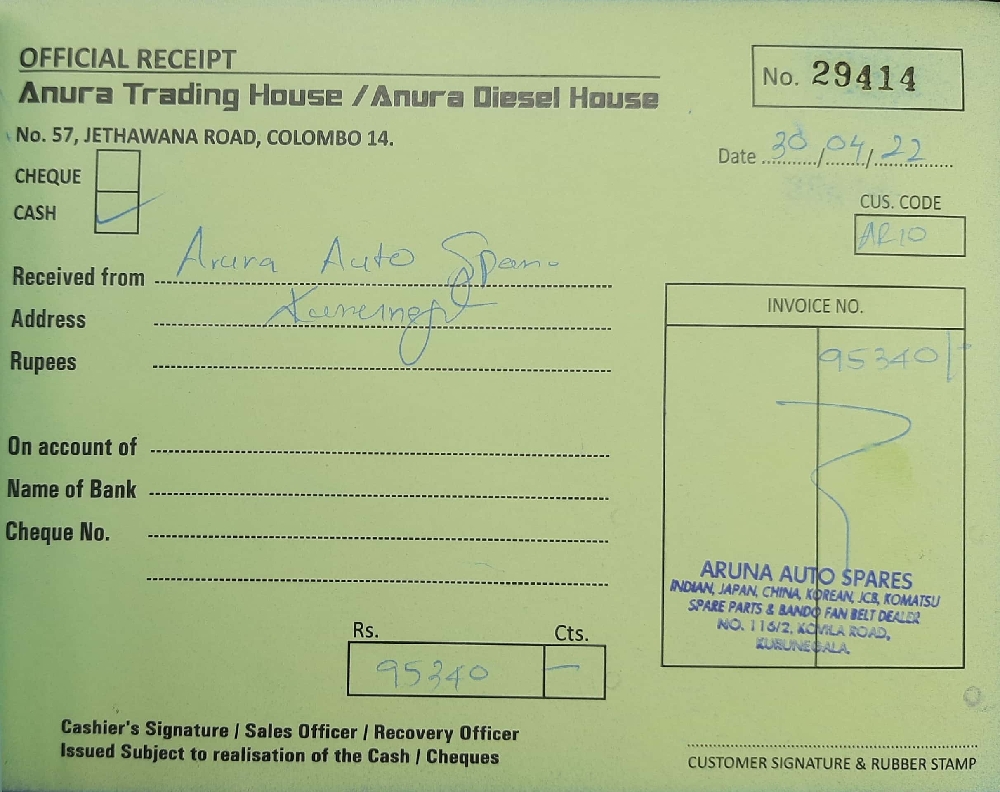 OFFICIAL RECEIPT
Anura Trading House / Anura Diesel House
No. 57, JETHAWANA ROAD, COLOMBO 14.
No. 29414
Date 30/04/22
CHEQUE
CASH
CUS. CODE
AR10
Received from Aruna Auto Spares
Address Kurunegala
Rupees
INVOICE NO.
95340/-
On account of
Name of Bank
Cheque No.
ARUNA AUTO SPARES
INDIAN, JAPAN, CHINA, KOREAN, JCB, KOMATSU
SPARE PARTS & BANDO FAN BELT DEALER
NO. 116/2, KOVILA ROAD,
KURUNEGALA.
Rs. Cts.
95340 —
Cashier's Signature / Sales Officer / Recovery Officer
Issued Subject to realisation of the Cash / Cheques
CUSTOMER SIGNATURE & RUBBER STAMP